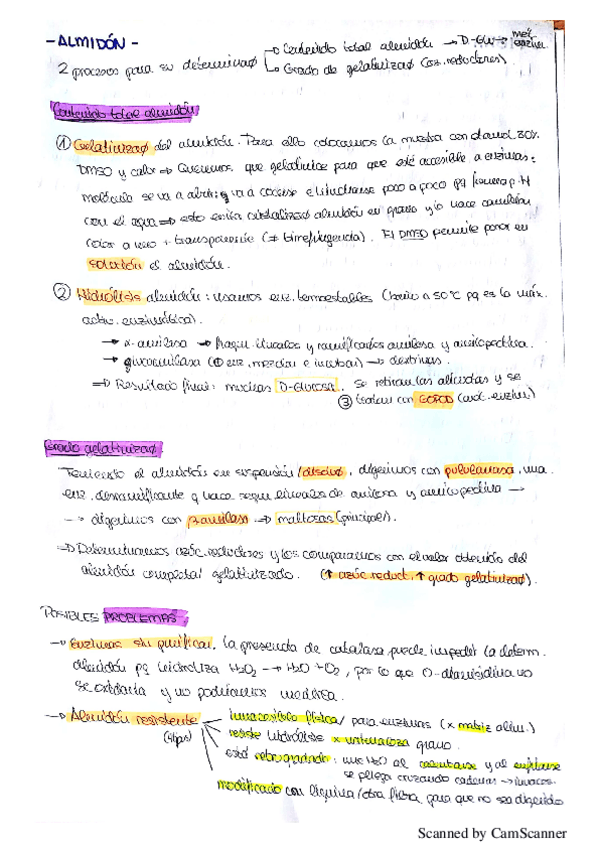 -ALMIDÓN-
2 procesos para su determinaø
Contenido total almidón → D-Glu → met. enzim.
Grado de gelatinizaø (az. reductores).
Contenido total almidón
① Gelatinizaø del almidón. Para ello colocamos la muestra con etanol 80%
DMSO y calor ⇒ Queremos que gelatinice para que esté accesible a enzimas:
molécula se va a abrir; va a cocerse e hincharse poco a poco pq forma p.H
con el agua ⇒ esto evita cristalizaø almidón en grano y lo hace cambiar
color a uno + transparente (≠ birrefringencia). El DMSO permite poner en
solución el almidón.
② Hidrólisis almidón: usamos enz. termoestables (baño a 50°C pq es la máx.
activ. enzimática).
→ α-amilasa → fragm. lineales y ramificados amilosa y amilopectina.
→ glucoamilasa (⊕ enz, mezclar e incubar) → dextrinas.
⇒ Resultado final: muchas D-Glucosa. Se retiran las alícuotas y se
③ tratan con GOPOD (valor. enzim)
Grado gelatinizaø
Teniendo el almidón en suspensión/disoluø, digerimos con pululanasa, una
enz. desramificante q hace segm. lineales de amilosa y amilopectina →
→ digerimos con β-amilasa → maltosas (principal).
⇒ Determinamos azúc. reductores y los comparamos con el valor obtenido del
almidón completa/ gelatinizado. (↑ azúc reduct, ↑ grado gelatinizaø).
POSIBLES PROBLEMAS:
→ Enzimas sin purificar. La presencia de catalasa puede impedir la determ.
almidón pq hidroliza H2O2 → H2O + O2, por lo que O-dianisidina no
se oxidaría y no podríamos medirla.
→ Almidón resistente
(tipos)
inaccesible física/ para enzimas (x matriz alim.)
resiste hidrólisis x naturaleza grano.
está retrogradado: une H2O al calentarse y al enfriarse
se pliega cruzando cadenas → inacces.
modificado con lignina/otra fibra, para que no sea digerido
Scanned by CamScanner